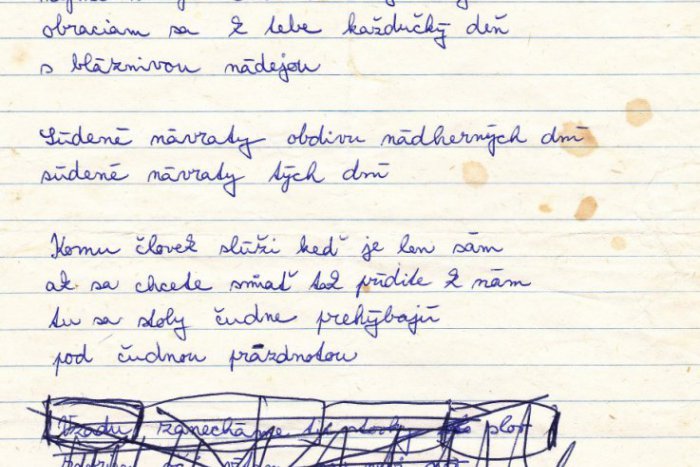 obraciam sa k tebe každučký deň
s bláznivou nádejou
Súdené návraty obdivu nádherných dní
súdené návraty tých dní
Komu človek slúži keď je len sám
ak sa chcete smiať tak príďite k nám
tu sa stoly čudne prehýbajú
pod čudnou prázdnotou
Vzadu zanecháme tie stovky slov